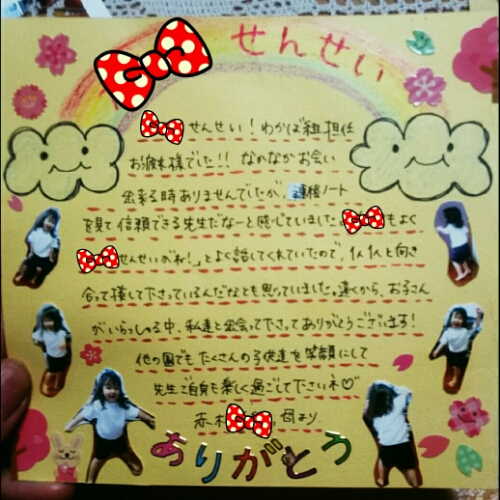 せんせい
せんせい！わかば組担任
お疲れ様でした!! なかなかお会い
出来る時ありませんでしたが、連絡ノート
を見て信頼できる先生だなーと感じていました。もよく
せんせいがね！」とよく話してくれていたので、1人1人と向き
合って接して下さっているんだなとも思っていました。遠くから、お子さん
がいらっしゃる中、私達と出会って下さってありがとうございます！
他の園でもたくさんの子供達を笑顔にして
先生ご自身も楽しく過ごして下さいネ♡
赤木 母より
ありがとう